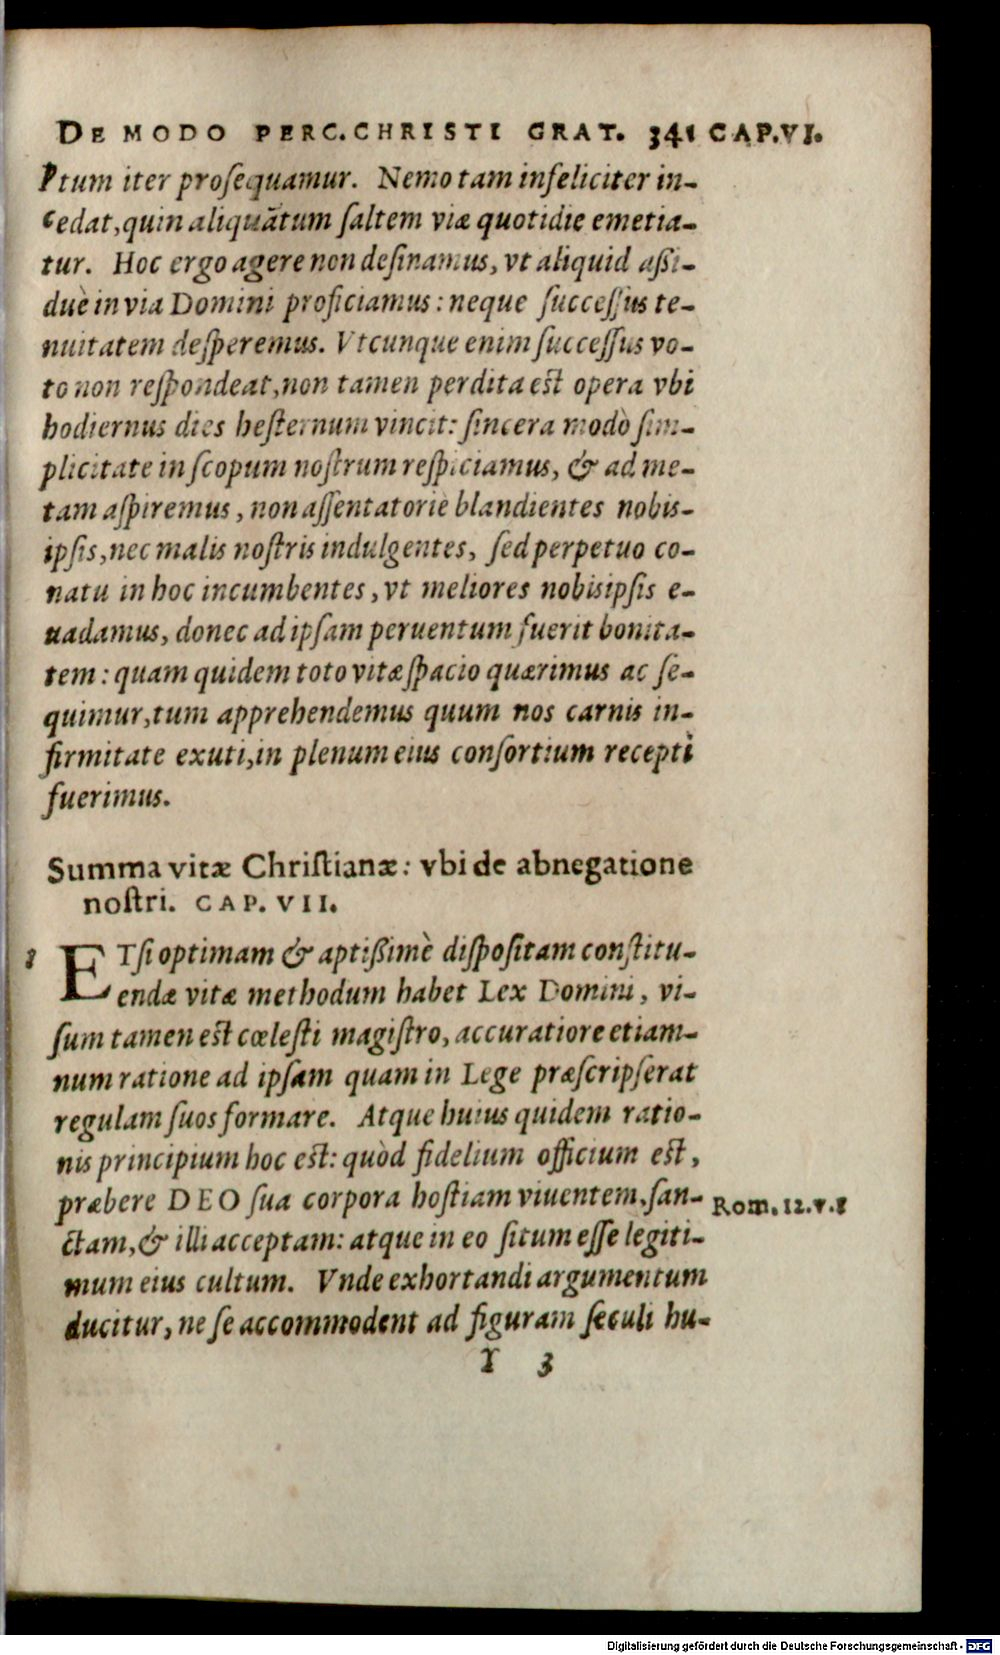 DE MODO PERC. CHRISTI GRAT. 341 CAP. VI.
ptum iter proſequamur. Nemo tam infeliciter in-
cedat, quin aliquãtum ſaltem viæ quotidie emetia-
tur. Hoc ergo agere non deſinamus, vt aliquid aßi-
duè in via Domini proficiamus: neque ſucceſſus te-
nuitatem deſperemus. Vtcunque enim ſucceſſus vo-
to non reſpondeat, non tamen perdita est opera vbi
hodiernus dies heſternum vincit: ſincera modò ſim-
plicitate in ſcopum noſtrum reſpiciamus, & ad me-
tam aſpiremus, non aſſentatoriè blandientes nobis-
ipſis, nec malis noſtris indulgentes, ſed perpetuo co-
natu in hoc incumbentes, vt meliores nobisipſis e-
uadamus, donec ad ipſam peruentum fuerit bonita-
tem: quam quidem toto vitæ ſpacio quærimus ac ſe-
quimur, tum apprehendemus quum nos carnis in-
firmitate exuti, in plenum eius conſortium recepti
fuerimus.
Summa vitæ Chriſtianæ: vbi de abnegatione
noſtri. CAP. VII.
1 ETſi optimam & aptißimè diſpoſitam conſtitu-
endæ vitæ methodum habet Lex Domini, vi-
ſum tamen est cœleſti magiſtro, accuratiore etiam-
num ratione ad ipſam quam in Lege præſcripſerat
regulam ſuos formare. Atque huius quidem ratio-
nis principium hoc est: quòd fidelium officium est,
præbere DEO ſua corpora hoſtiam viuentem, ſan-
ctam, & illi acceptam: atque in eo ſitum eſſe legiti-
mum eius cultum. Vnde exhortandi argumentum
ducitur, ne ſe accommodent ad figuram ſeculi hu-
Rom. 12. v. 1
Y 3
Digitalisierung gefördert durch die Deutsche Forschungsgemeinschaft - DFG